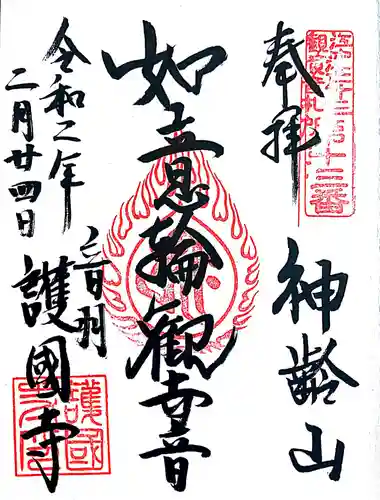 奉拝
江戸三十三所
観音札所十三番
神齢山
如意輪観世音
令和二年
二月廿四日
音羽
護國寺
護国